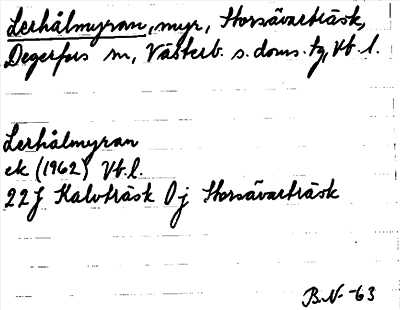 Lerhålmyran, myr, Storsävarträsk,
Degerfors sn, Västerb. s. doms. tg, Vb. l.
Lerhålmyran
ek (1962) Vb. l.
22J Kalvträsk 0j Storsävarträsk
B.N. -63